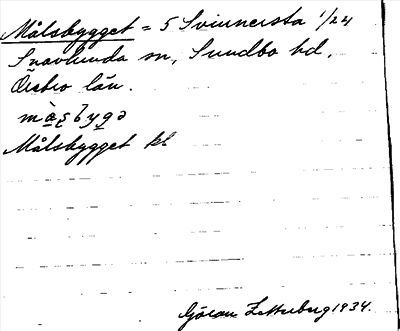 Målsbygget = 5 Svinnersta 1/24
Snavlunda sn, Sundbo hd.
Örebro län.
Målsbygget kb
Göran Zetterberg 1934.